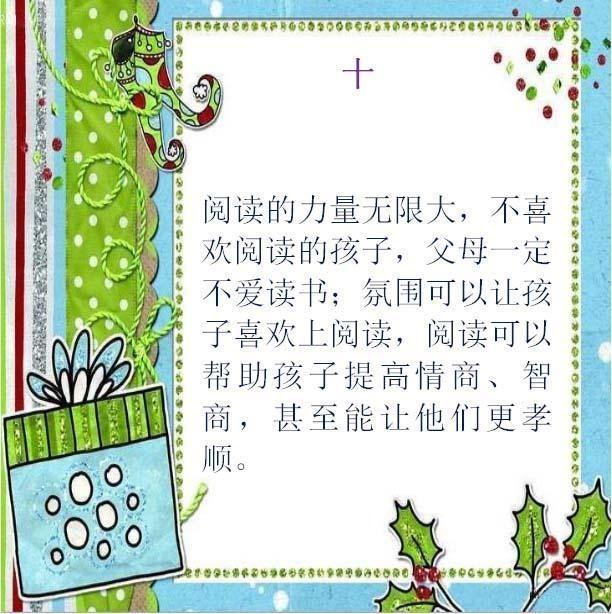 十
阅读的力量无限大，不喜
欢阅读的孩子，父母一定
不爱读书；氛围可以让孩
子喜欢上阅读，阅读可以
帮助孩子提高情商、智
商，甚至能让他们更孝
顺。